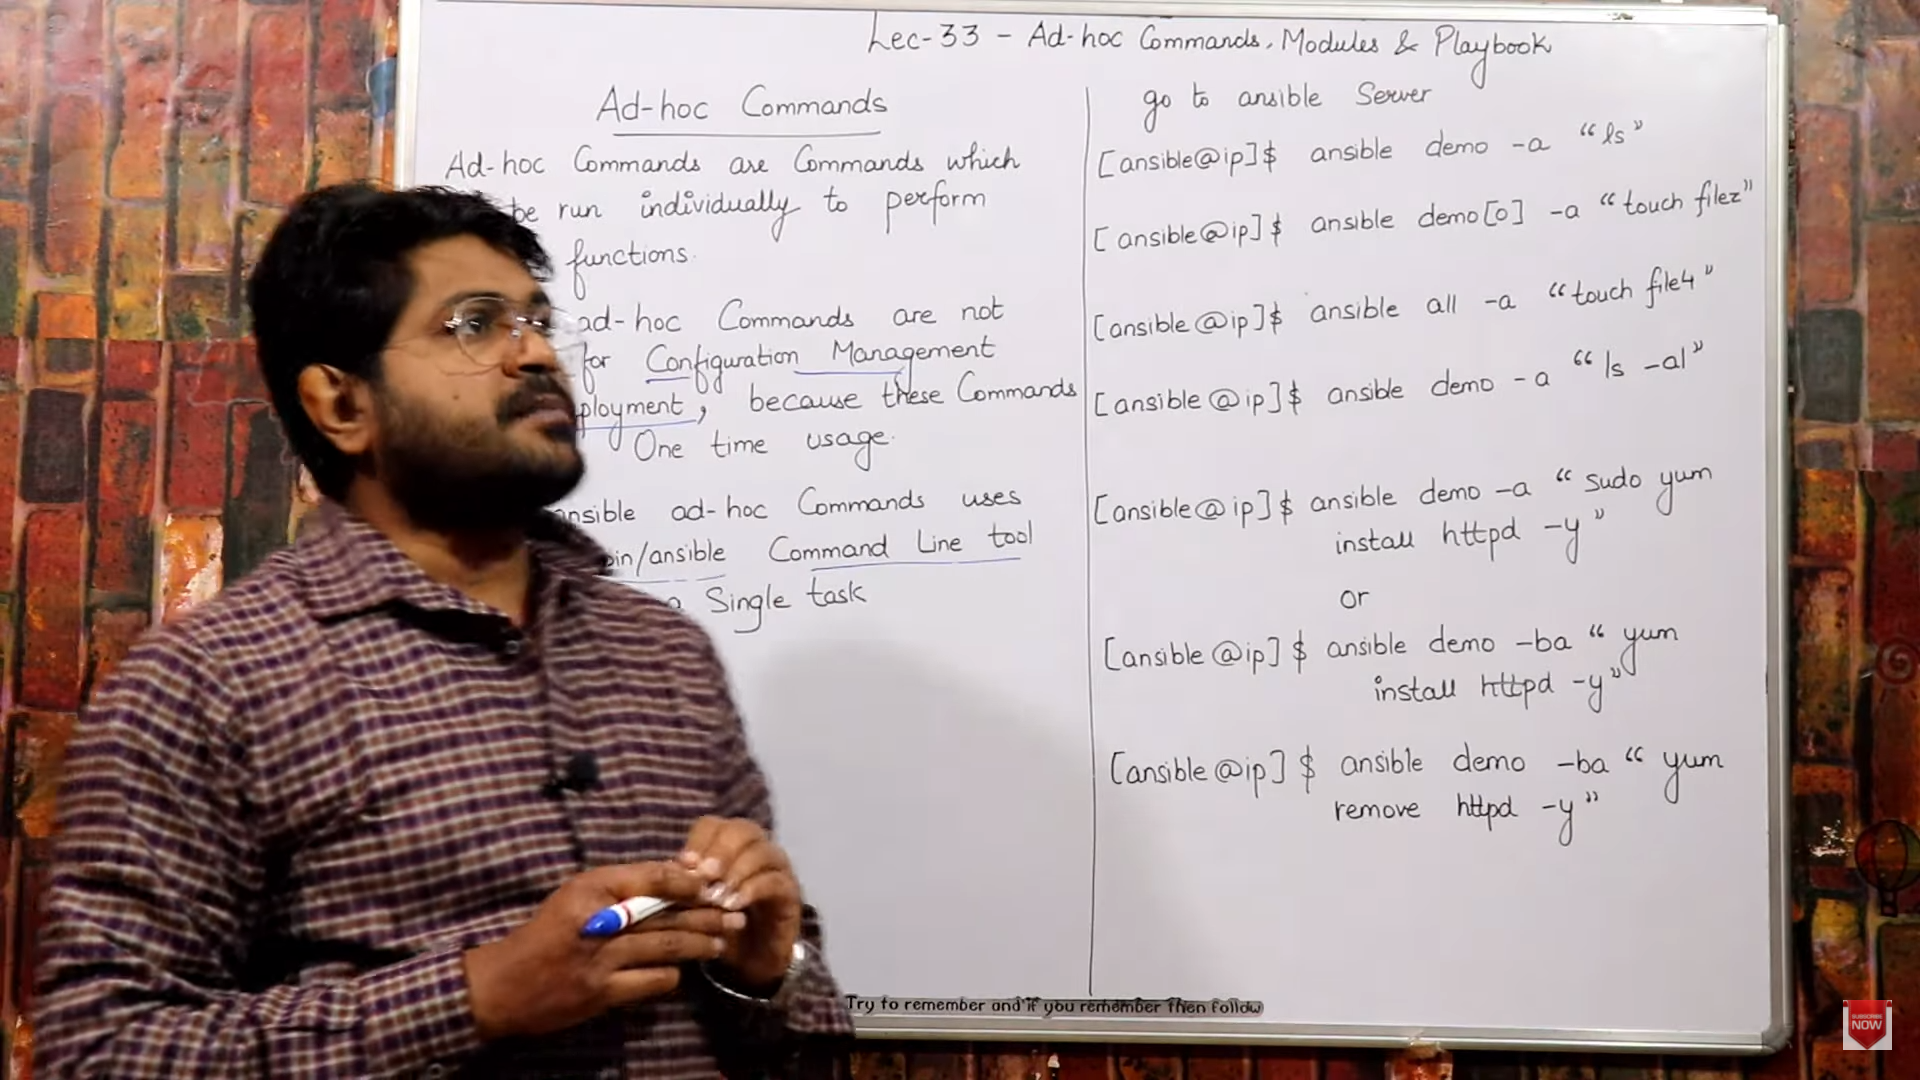 Lec-33 - Ad-hoc Commands, Modules & Playbook
Ad-hoc Commands
Ad-hoc Commands are Commands which
be run individually to perform
functions.
ad-hoc Commands are not
for Configuration Management
ployment, because these Commands
One time usage.
nsible ad-hoc Commands uses
bin/ansible Command Line tool
a Single task
go to ansible Server
[ansible@ip]$ ansible demo -a “ls”
[ansible@ip]$ ansible demo[0] -a “touch filez”
[ansible@ip]$ ansible all -a “touch file4”
[ansible@ip]$ ansible demo -a “ls -al”
[ansible@ip]$ ansible demo -a “sudo yum
install httpd -y”
or
[ansible@ip]$ ansible demo -ba “yum
install httpd -y”
[ansible@ip]$ ansible demo -ba “yum
remove httpd -y”
Try to remember and if you remember Then follow
SUBSCRIBE
NOW